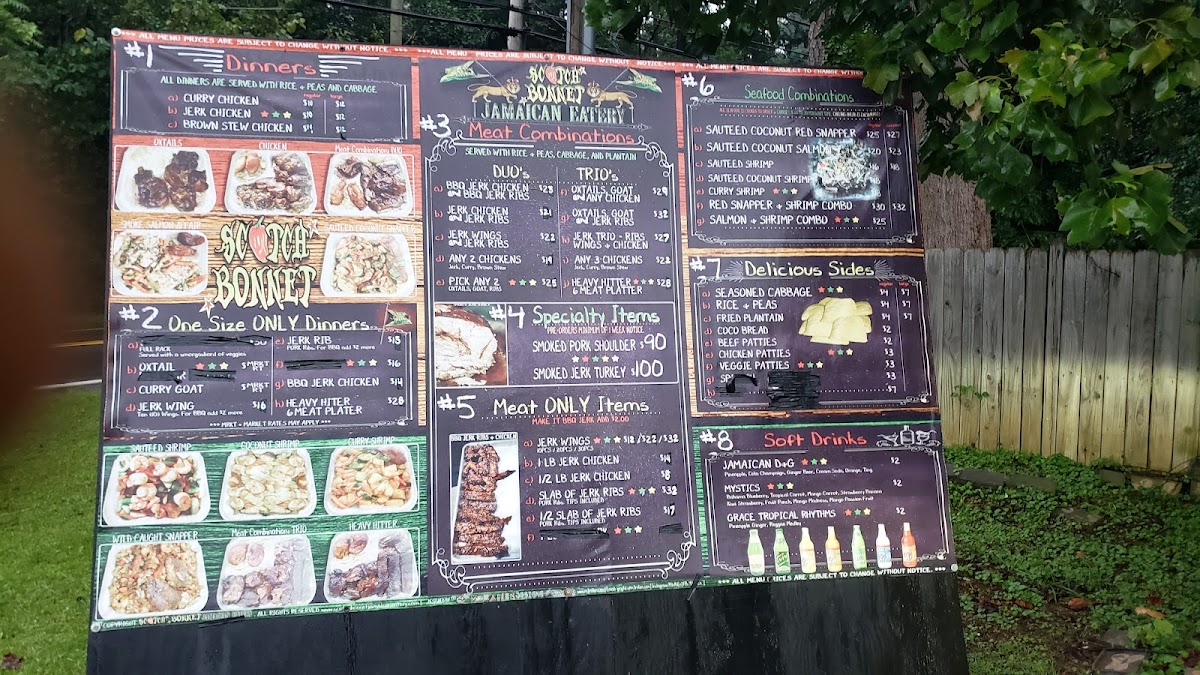 *** ALL MENU PRICES ARE SUBJECT TO CHANGE WITHOUT NOTICE. ***
***ALL MENU PRICES ARE SUBJECT TO CHANGE WITHOUT NOTICE.***
#1 Dinners
ALL DINNERS ARE SERVED WITH RICE + PEAS AND CABBAGE
regular large
a) CURRY CHICKEN $10 $12
b) JERK CHICKEN $10 $12
c) BROWN STEW CHICKEN
OXTAILS
CHICKEN
Meat Combination: DUO
SCOTCH
BONNET
#2 One Size ONLY Dinners
FULL RACK
Served with a smorgasbord of veggies
b) OXTAIL $MRKT RT
c) CURRY GOAT $MRKT RT
d) JERK WING $16
Ten (10) Wings. For BBQ add $2 more
e) JERK RIB $18
PORK Ribs. For BBQ add $2 more
$16
g) BBQ JERK CHICKEN $14
h) HEAVY HITER $28
6 MEAT PLATER
*** MRKT = MARKET RATES MAY APPLY ***
SAUTEED SHRIMP
COCONUT SHRIMP
CURRY SHRIMP
WILD CAUGHT SNAPPER
Meat Combination: TRIO
HEAVY HITTER
COPYRIGHT SCOTCH BONNET
ALL RIGHTS RESERVED
SCOTCH
BONNET
JAMAICAN EATERY
#3 Meat Combinations
SERVED WITH RICE + PEAS, CABBAGE, AND PLANTAIN
DUO's
a) BBQ JERK CHICKEN $23
BBQ JERK RIBS
b) JERK CHICKEN $21
JERK RIBS
c) JERK WINGS $22
JERK RIBS
d) ANY 2 CHICKENS $19
Jerk, Curry, Brown Stew
e) PICK ANY 2 $25
OXTAILS, GOAT, RIBS
TRIO's
f) OXTAILS, GOAT $29
ANY CHICKEN
g) OXTAILS, GOAT $32
JERK RIBS
h) JERK TRIO - RIBS $27
WINGS + CHICKEN
i) ANY 3 CHICKENS $22
Jerk, Curry, Brown Stew
j) HEAVY HITTER $28
6 MEAT PLATTER
#4 Specialty Items
PRE-ORDERS MINIMUM OF 1 WEEK NOTICE
SMOKED PORK SHOULDER $90
SMOKED JERK TURKEY $100
#5 Meat ONLY Items
MAKE IT BBQ JERK ADD $2.00
BBQ JERK RIBS + CHICKEN
a) JERK WINGS $12 /$22 /$32
10PCS / 20PCS / 30PCS
b) 1 LB JERK CHICKEN $14
c) 1/2 LB JERK CHICKEN $8
d) SLAB OF JERK RIBS $32
PORK Ribs. TIPS INCLUDED
e) 1/2 SLAB OF JERK RIBS $17
PORK Ribs. TIPS INCLUDED
f)
#6 Seafood Combinations
a) SAUTEED COCONUT RED SNAPPER $25 $27
b) SAUTEED COCONUT SALMON $20 $23
c) SAUTEED SHRIMP
d) SAUTEED COCONUT SHRIMP
e) CURRY SHRIMP
f) RED SNAPPER + SHRIMP COMBO $30 $32
g) SALMON + SHRIMP COMBO $25
#7 Delicious Sides
regular large
a) SEASONED CABBAGE $4 $7
b) RICE + PEAS $4 $7
c) FRIED PLANTAIN $4 $7
d) COCO BREAD $2
e) BEEF PATTIES $3
f) CHICKEN PATTIES $3
g) VEGGIE PATTIES $3
$7
#8 Soft Drinks
JAMAICAN D+G $2
Pineapple, Cola Champaign, Ginger Beer, Cream Soda, Orange, Ting
MYSTICS $2
Bahama Blueberry, Tropical Carrot, Mango Carrot, Strawberry Banana
Kiwi Strawberry, Fruit Punch, Mango Madness, Mango Passion Fruit
GRACE TROPICAL RHYTHMS $2
Pineapple Ginger, Reggae Medley
*** ALL MENU PRICES ARE SUBJECT TO CHANGE WITHOUT NOTICE. ***